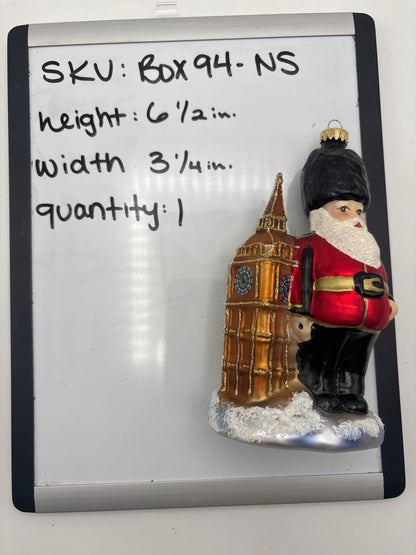 SKU: Box94-NS
height: 6 1/2 in.
width 3 1/4 in.
quantity: 1